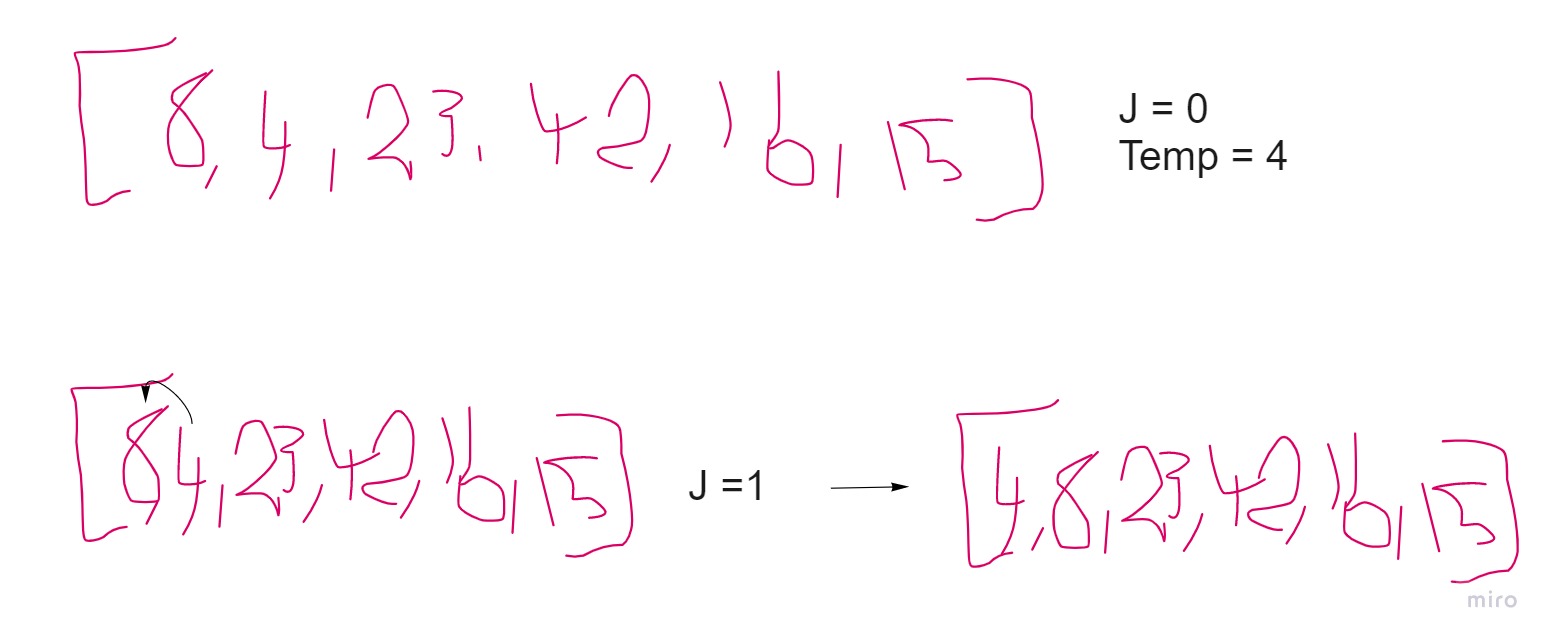 [8, 4, 23, 42, 16, 15]
J = 0
Temp = 4
[8, 4, 23, 42, 16, 15]
J =1
[4, 8, 23, 42, 16, 15]
miro